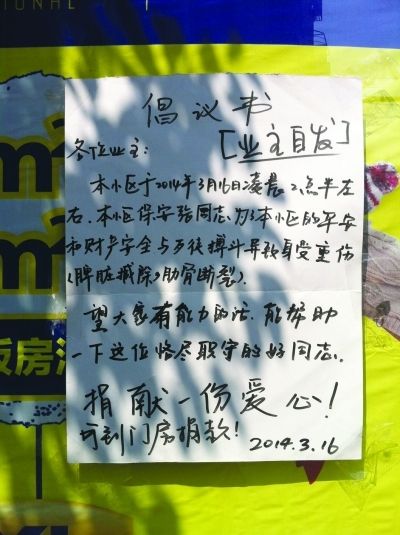 IONAL
倡议书
[业主自发]
各位业主:
本小区于2014年3月16日凌晨2点半左
右、本小区保安张同志为了本小区的平安
和财产安全与歹徒搏斗导致身受重伤
(脾脏摘除,肋骨断裂).
望大家有能力的话.能帮助
一下这位恪尽职守的好同志.
捐献一份爱心!
可到门房捐款!
2014.3.16
m
m
板房